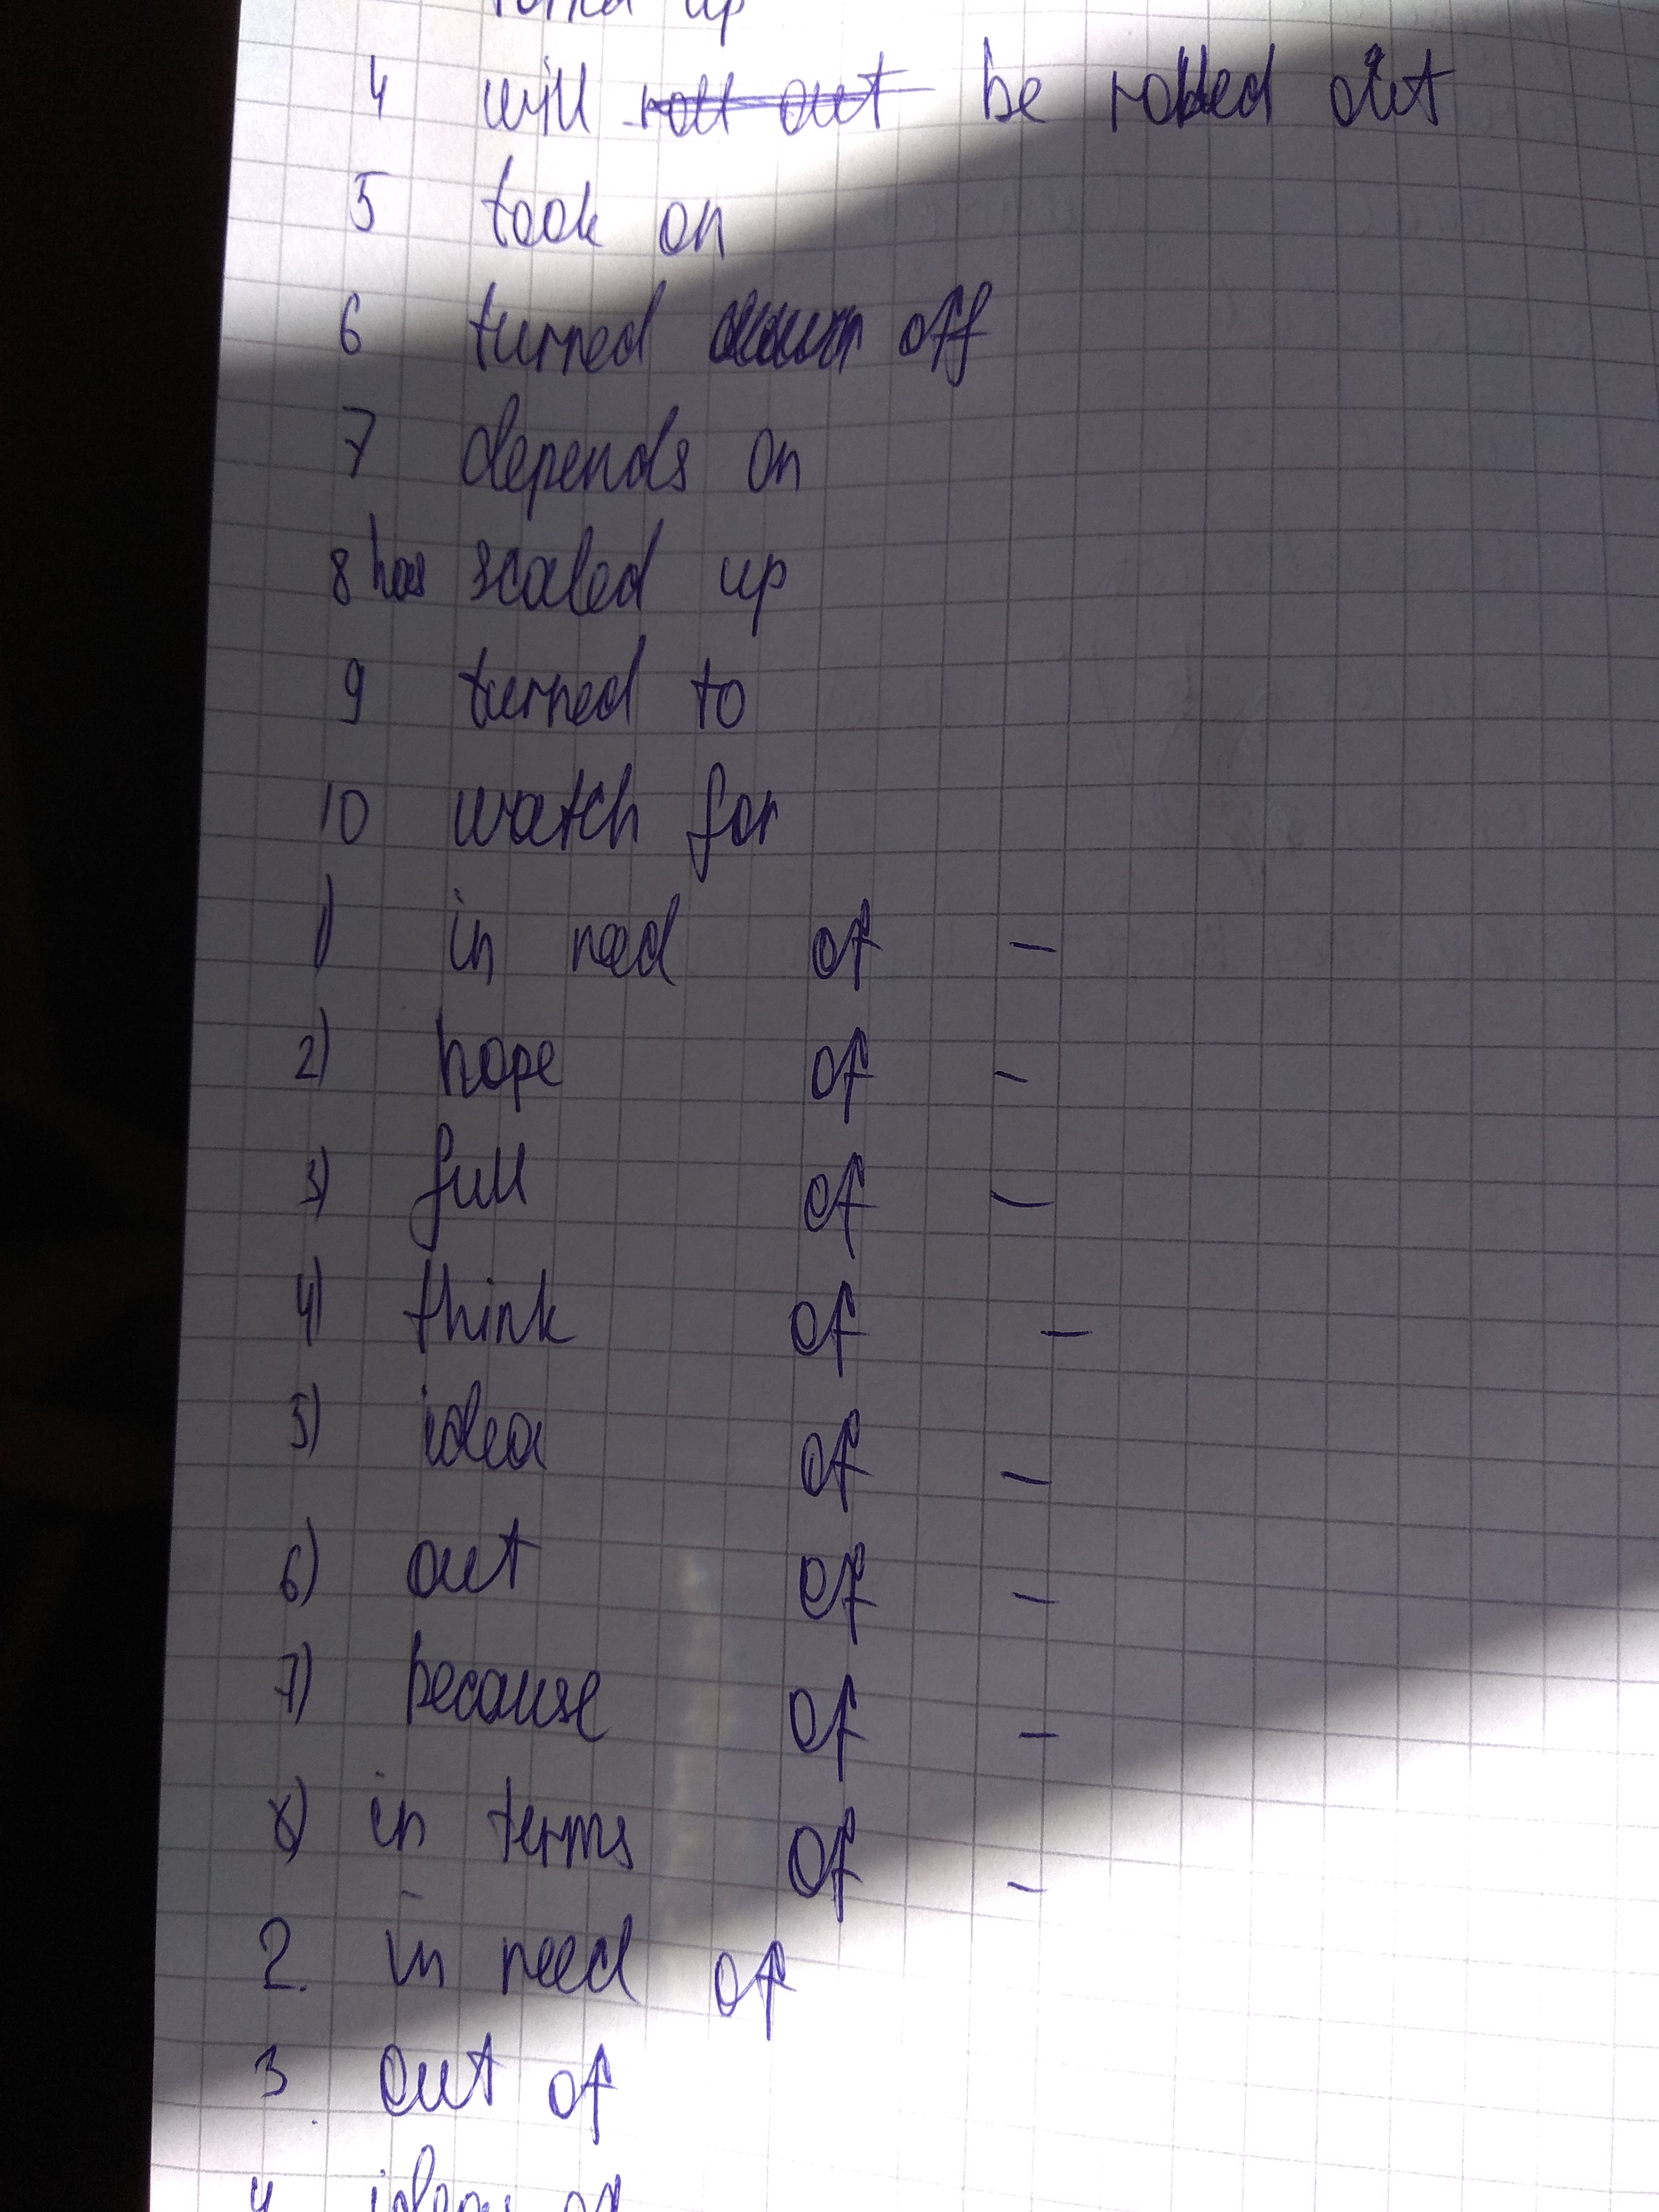 up
4 will roll out be rolled out
5 took on
6 turned down off
7 depends on
8 has scaled up
9 turned to
10 watch for
1) in need of –
2) hope of –
3) full of –
4) think of –
5) idea of –
6) out of –
7) because of –
8) in terms of –
2. in need of
3 out of
4 idea of